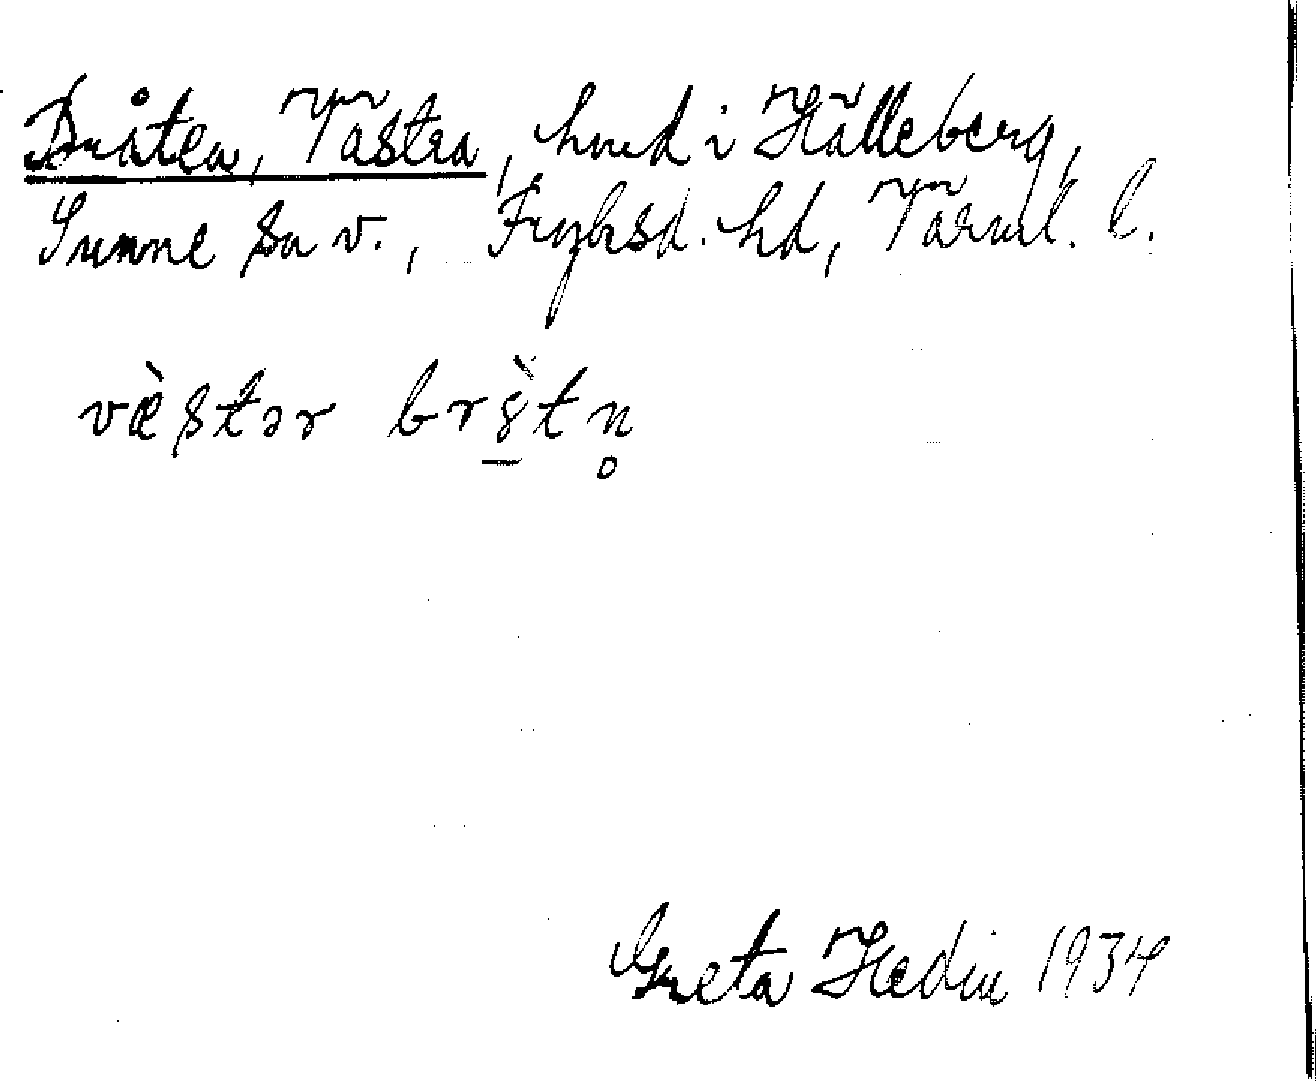 Bråten, Västra, hmd i Hälleberg,
Sunne sn v., Fryksd. hd, Värml. l.
væ̀stər
Greta Hedin 1934